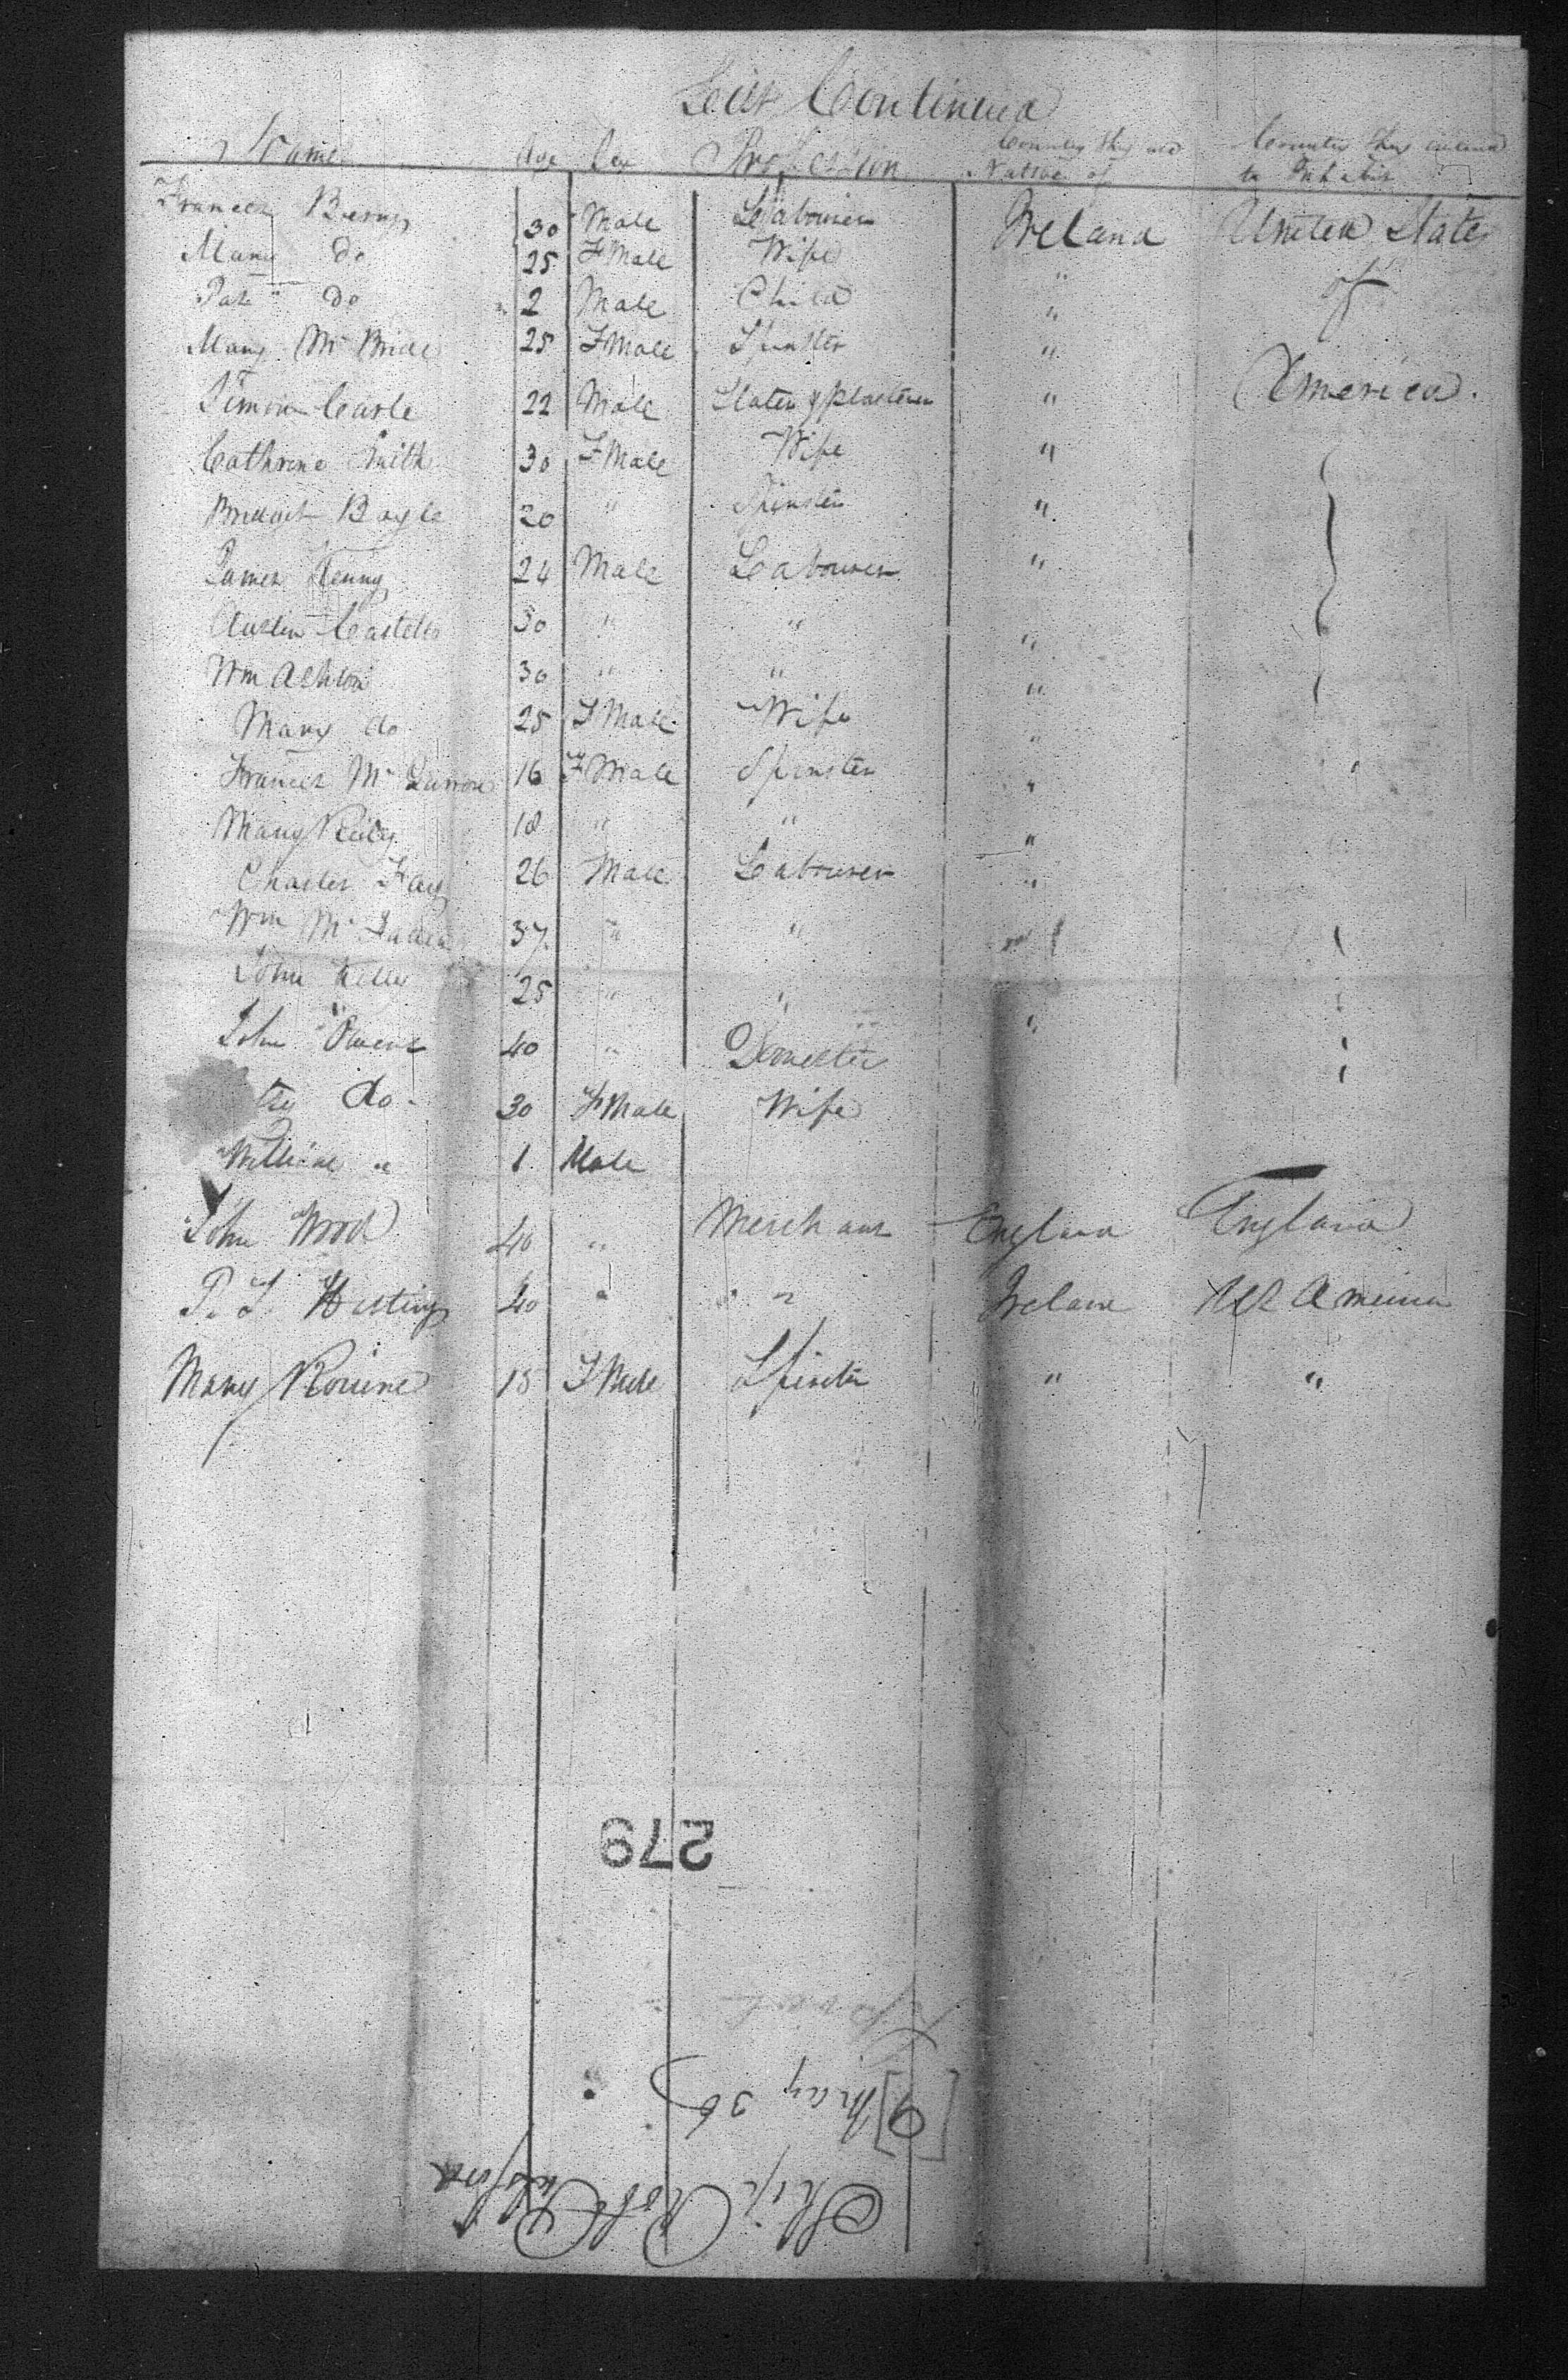 List Continued
Name Age Sex Profession Country they are Native of Country they intend to Inhabit
Frances 30 Male Labourer Ireland United States
Mary do 25 FMale Wife " of
Pat do 2 Male Child " America.
Mary Mc Bride 25 FMale Spinster "
Simon 22 Male Slater & Plasterer "
Cathrine Smith 30 FMale Wife "
Bridget Boyle 20 " Spinster "
James Kenny 24 Male Labourer "
Austin Castello 30 " " "
Wm Ashton 30 " " "
Mary do 25 FMale Wife "
Frances Mc 16 FMale Spinster "
Mary Reily 18 " " "
Charles Fay 26 Male Labourer "
Wm Mc 37 " " "
John Kelly 25 " " "
John Owens 40 " Domestic
do 30 FMale Wife
William " 1 Male
John Wood 40 " Merchant England England
P. S. Hastings 40 " " Ireland America
Mary 18 FMale Spinster " "
279
[9] May 36
Ship